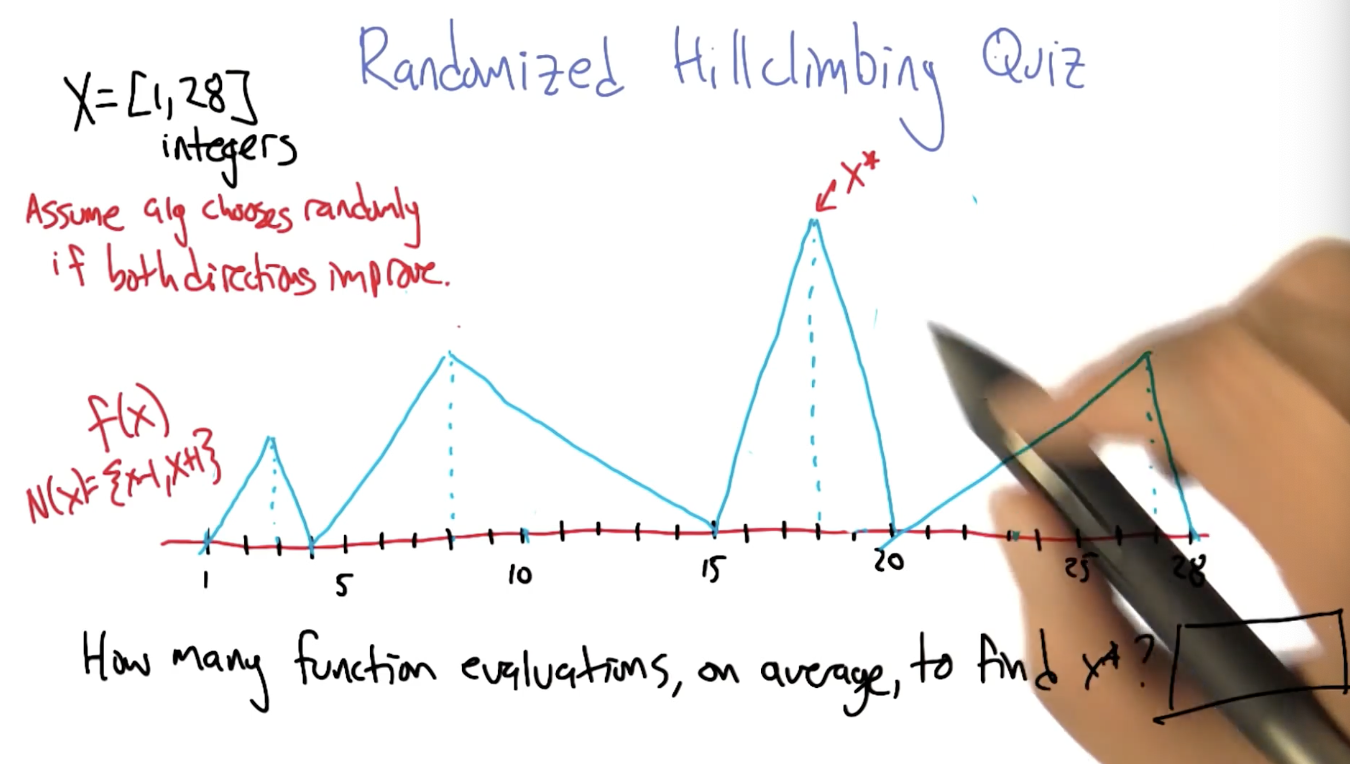 Randomized Hillclimbing Quiz
X=[1,28]
integers
Assume alg chooses randomly
if both directions improve.
x*
f(x)
N(x)={x-1,x+1}
1 5 10 15 20 25 28
How many function evaluations, on average, to find x*?